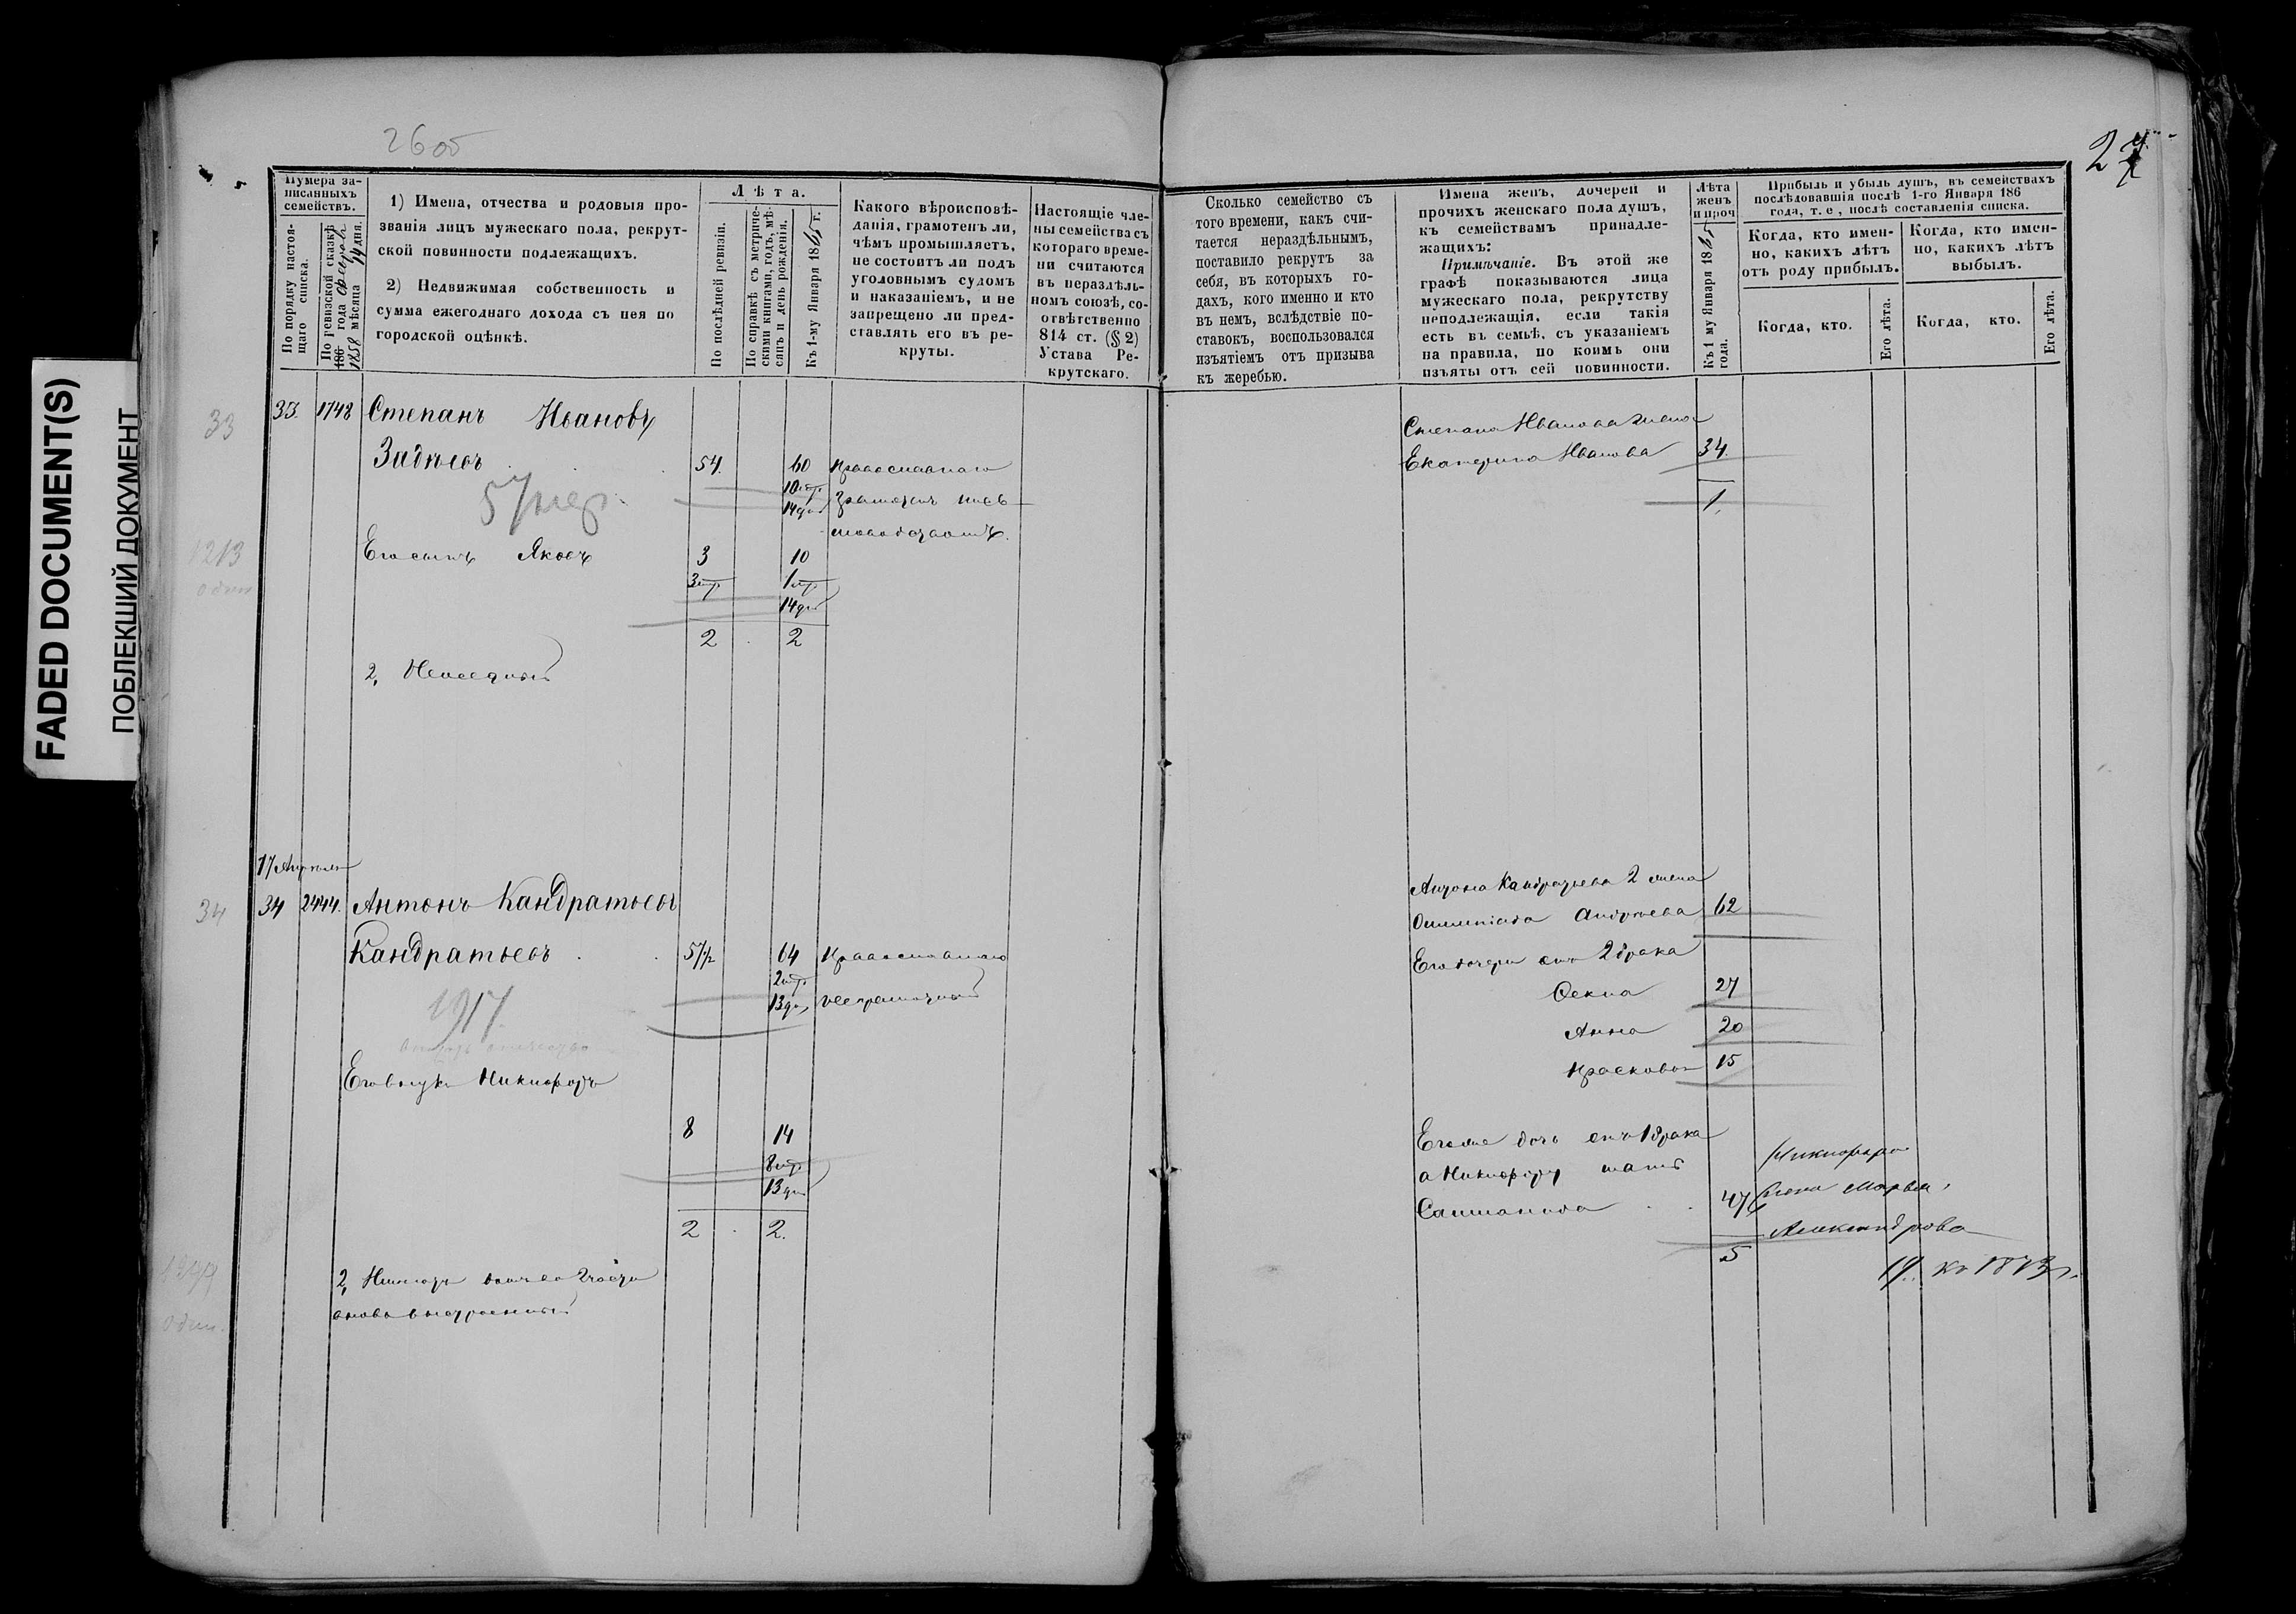 FADED DOCUMENT(S)
ПОБЛЕКШИЙ ДОКУМЕНТ
26об
27
Нумера записанныхъ семействъ.
По порядку настоящаго списка.
По ревизской сказкѣ 186 года
1858 мѣсяца 14 дня.
1) Имена, отчества и родовыя прозванія лицъ мужескаго пола, рекрутской повинности подлежащихъ.
2) Недвижимая собственность и сумма ежегоднаго дохода съ нея по городской оцѣнкѣ.
Лѣта.
По послѣдней ревизіи.
По справкѣ съ метрическими книгами, годъ, мѣсяцъ и день рожденія.
Къ 1-му Января 1865 г.
Какого вѣроисповѣданія, грамотенъ ли, чѣмъ промышляетъ, не состоитъ ли подъ уголовнымъ судомъ и наказаніемъ, и не запрещено ли представлять его въ рекруты.
Настоящіе члены семейства съ котораго времени считаются въ нераздѣльномъ союзѣ, соотвѣтственно 814 ст. (§ 2) Устава Рекрутскаго.
Сколько семейство съ того времени, какъ считается нераздѣльнымъ, поставило рекрутъ за себя, въ которыхъ годахъ, кого именно и кто въ немъ, вслѣдствіе поставокъ, воспользовался изъятіемъ отъ призыва къ жеребью.
Имена женъ, дочерей и прочихъ женскаго пола душъ, къ семействамъ принадлежащихъ:
Примѣчаніе. Въ этой же графѣ показываются лица мужескаго пола, рекрутству неподлежащія, если такія есть въ семьѣ, съ указаніемъ на правила, по коимъ они изъяты отъ сей повинности.
Лѣта женъ и проч
Къ 1 му Января 1865 года.
Прибыль и убыль душъ, въ семействахъ послѣдовавшія послѣ 1-го Января 186 года, т. е, послѣ составленія списка.
Когда, кто именно, какихъ лѣтъ отъ роду прибылъ.
Когда, кто именно, какихъ лѣтъ выбылъ.
Когда, кто.
Его лѣта.
Когда, кто.
Его лѣта.
33
33. 1748 Степанъ Ивановъ
54. 60 православнаго
10
14
Его сынъ Яковъ 3 10
14
2 2
Степана Иванова жена
Екатерина Иванова 34.
1.
17 Апрѣля
34
34 2444. Антонъ Кандратьевъ
Кандратьевъ 64 Православнаго
13 неграмотный
1917
Его внукъ Никифоръ
8 14
13
2 2.
Антона Кандратьева 2 жена
Олимпіада Андреева 62
Его дочери отъ 2 брака
Фекла 27
Анна 20
Прасковья 15
Его же дочь отъ 1 брака
а Никифору мать
47
5
Никифора
жена Марья
Александрова
19. къ 1873 г.